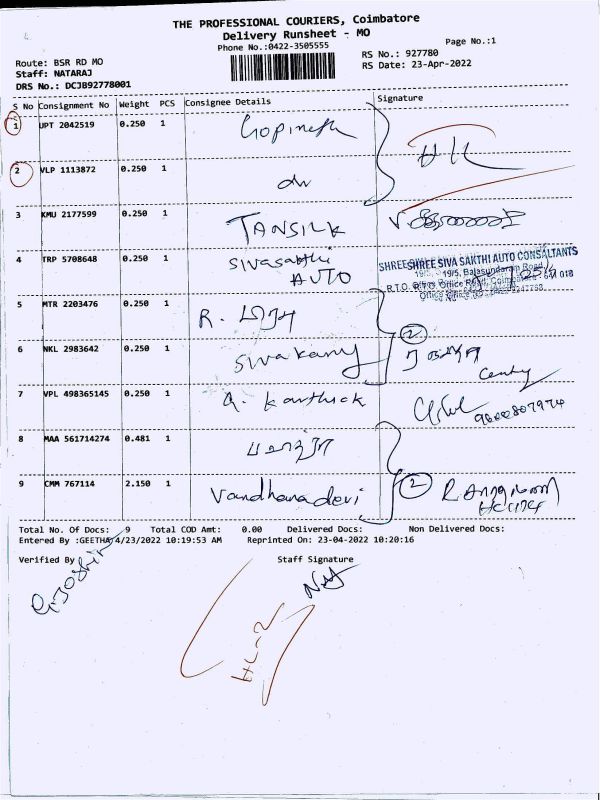 THE PROFESSIONAL COURIERS, Coimbatore
Delivery Runsheet - MO
Phone No.:0422-3505555
Page No.:1
Route: BSR RD MO
RS No.: 927780
Staff: NATARAJ
RS Date: 23-Apr-2022
DRS No.: DCJB92778001
S No Consignment No Weight PCS Consignee Details Signature
1 UPT 2042519 0.250 1 Gopinath
HC
2 VLP 1113872 0.250 1
3 KMU 2177599 0.250 1 TANSILK
4 TRP 5708648 0.250 1 Sivasakthi
AUTO
SHREE SIVA SAKTHI AUTO CONSALTANTS
19/5, Balasundaram Road,
5 MTR 2203476 0.250 1 R.
2
6 NKL 2983642 0.250 1 Sivakamy
7 VPL 498365145 0.250 1 Karthick
9600807974
8 MAA 561714274 0.481 1
2
9 CMM 767114 2.150 1 Vandhanadevi
Total No. Of Docs: 9 Total COD Amt: 0.00 Delivered Docs: Non Delivered Docs:
Entered By :GEETHA 4/23/2022 10:19:53 AM Reprinted On: 23-04-2022 10:20:16
Verified By Staff Signature
HC-2